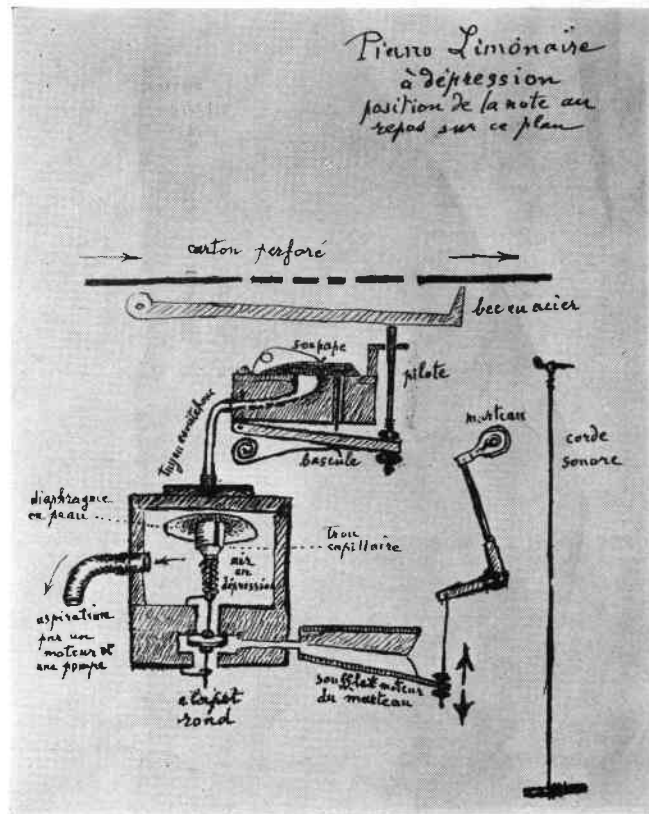 Piano Limonaire
à dépression
position de la note au
repos sur ce plan
carton perforé
bec en acier
soupape
pilote
tuyau caoutchouc
bascule
marteau
corde
sonore
diaphragme
en peau
trou
capillaire
air
en
dépression
aspiration
par un
moteur et
une pompe
soufflet moteur
du marteau
clapet
rond